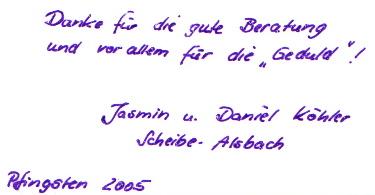 Danke für die gute Beratung
und vor allem für die „Geduld"!
Jasmin u. Daniel Köhler
Scheibe-Alsbach
Pfingsten 2005